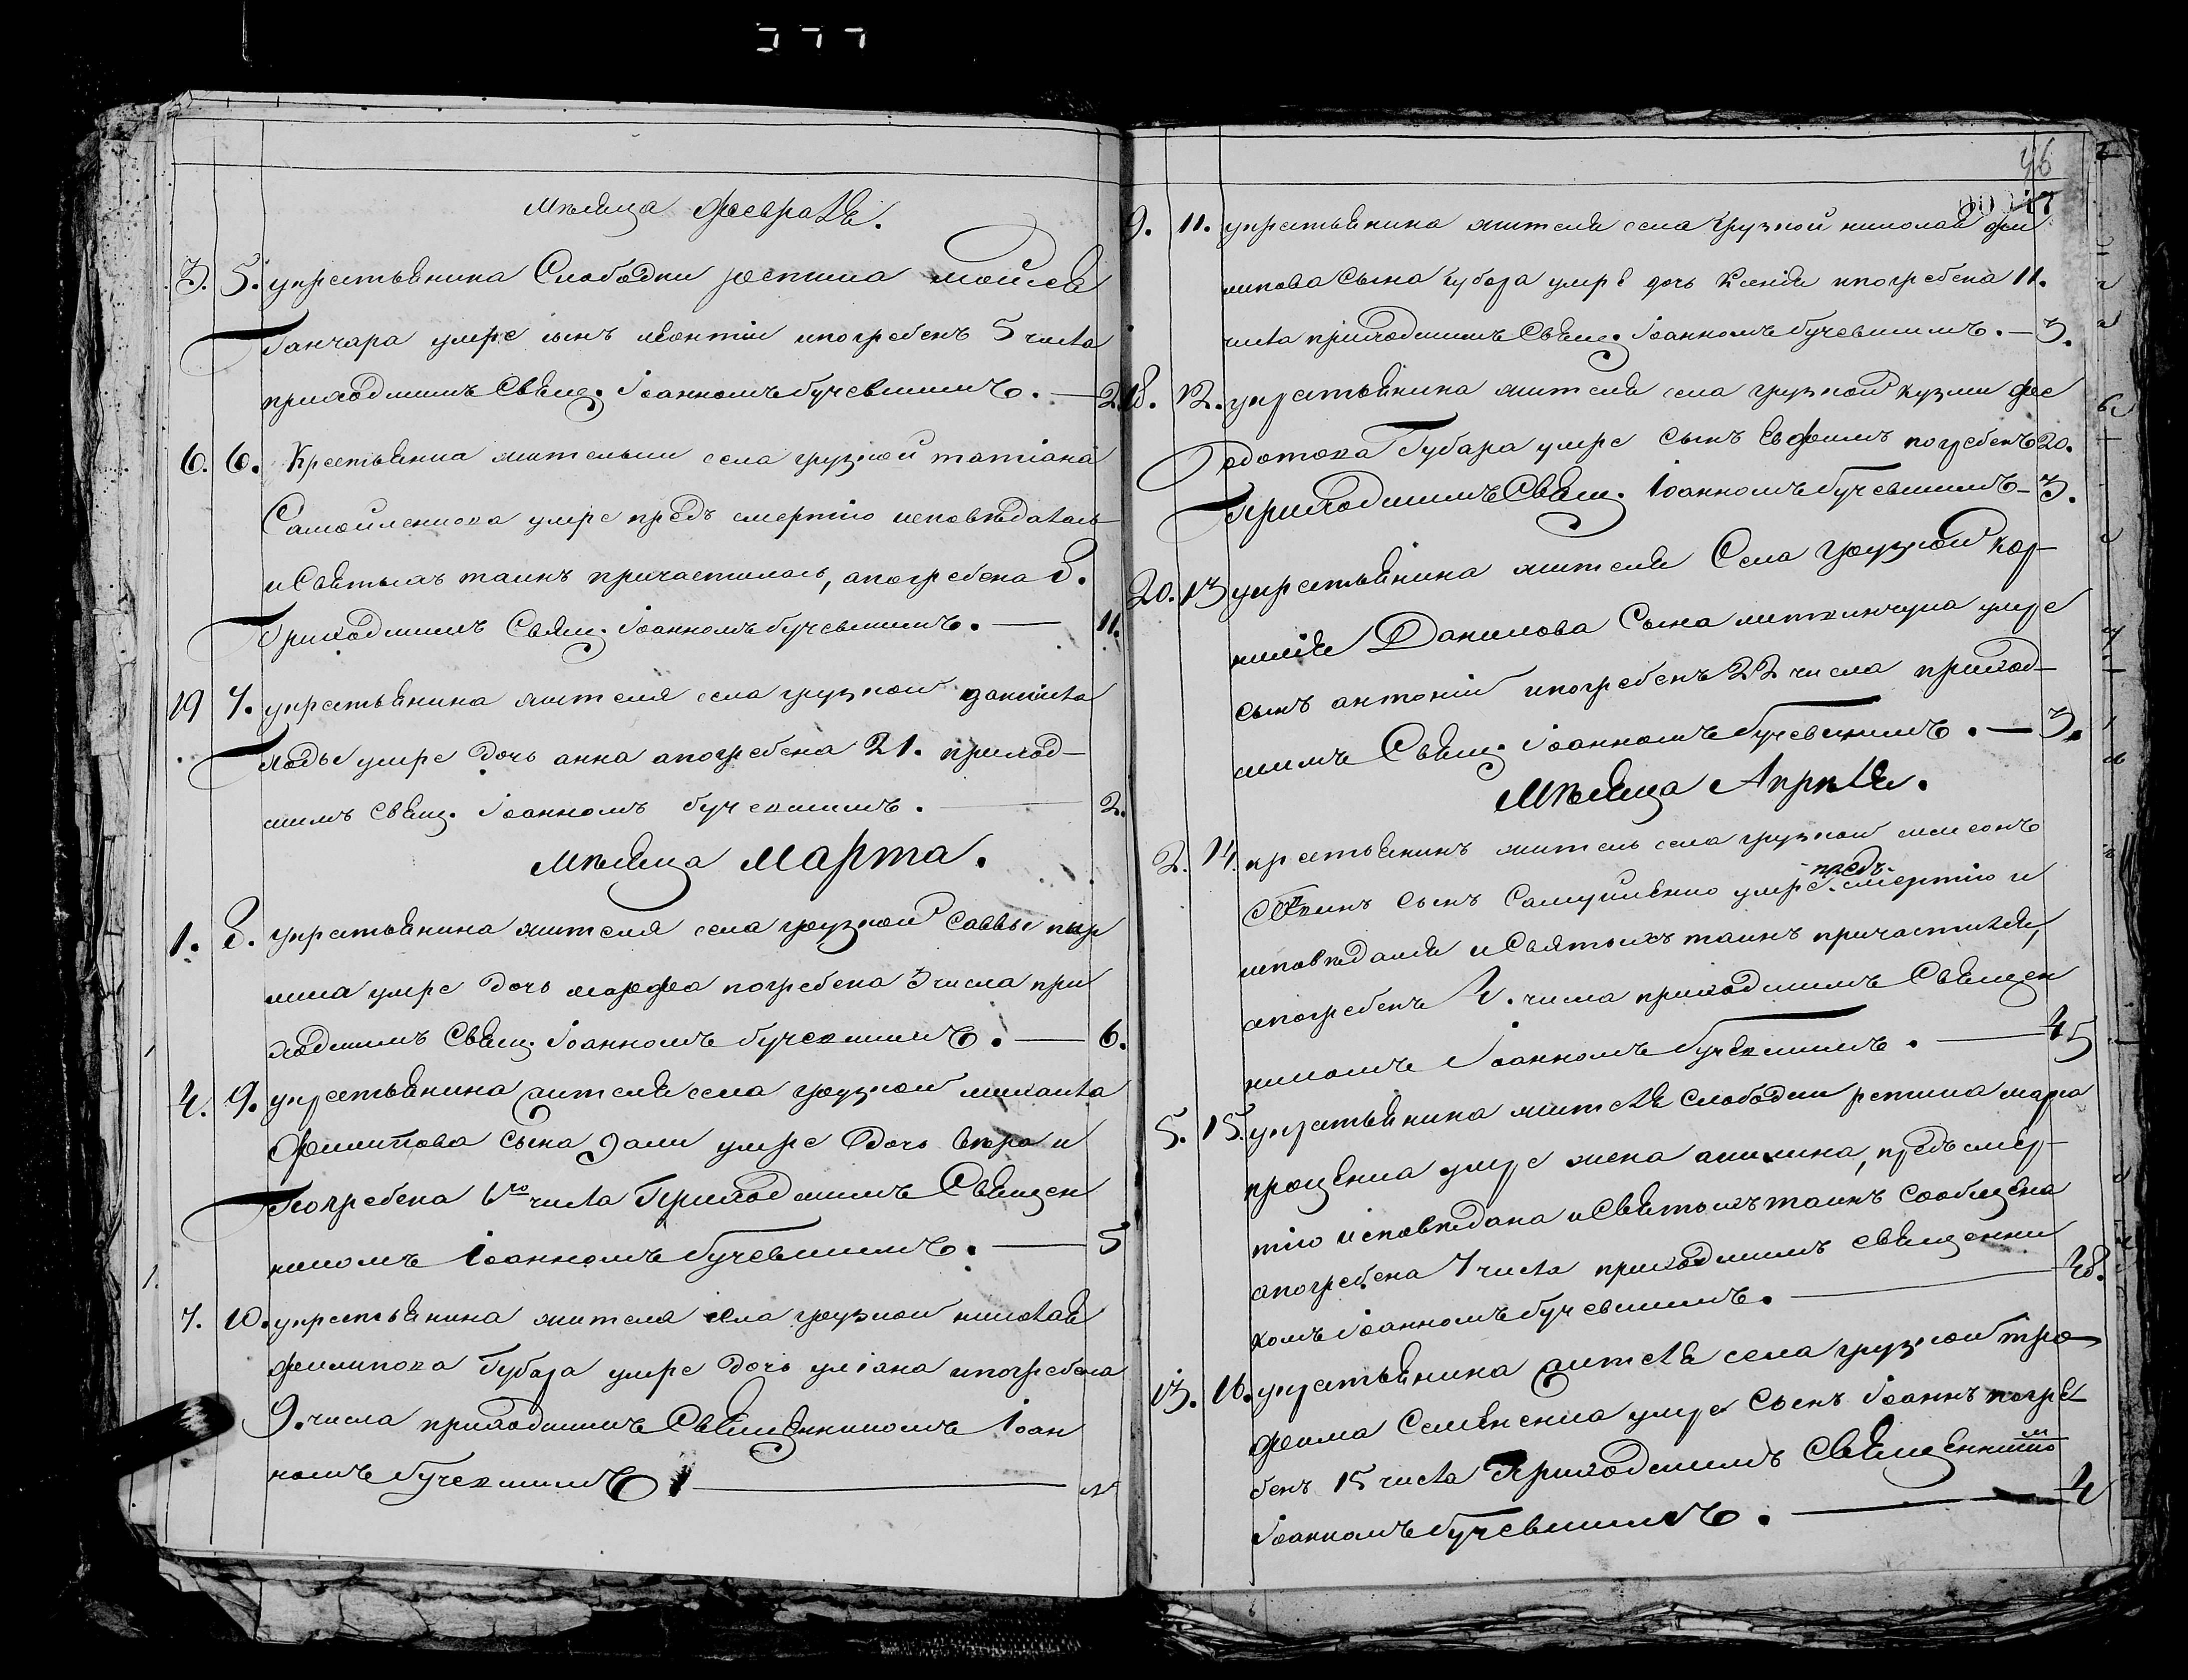 мѣсяца февраля.
3. 5. у крестьянина Слободки мойсея
Ганчара умре сынъ леонтій и погребенъ 5 числа
приходскимъ Свящ. Іоанномъ бучевскимъ. — 2.
6. 6. Крестьянка жителька села грузкой татіана
Самойленкова умре предъ смертію исповѣдалась
и Святыхъ таинъ причастилась, а погребена 8.
Приходскимъ Свящ. Іоанномъ бучевскимъ. — 11.
19 7. у крестьянина жителя села грузкой даниила
умре дочь анна а погребена 21. приход-
скимъ Свящ. Іоанномъ бучевскимъ. — 2.
мѣсяца марта.
1. 8. у крестьянина жителя села грузкой саввы
умре дочь марфа погребена 3 числа при
ходскимъ Свящ. Іоанномъ бучевскимъ. — 6.
4. 9. у крестьянина жителя села грузкой михаила
филипова сына умре дочь вѣра и
Погребена 6го числа Приходскимъ Священ
никомъ Іоанномъ бучевскимъ. — 5
7. 10. у крестьянина жителя села грузкой николая
филипова Губара умре дочь уліана и погребена
9. числа приходскимъ Священникомъ Іоан
номъ бучевскимъ —
46
17
9. 11. у крестьянина жителя села грузкой николая фи
липова сына губара умре дочь Ксенія и погребена 11.
числа приходскимъ Свящ. Іоанномъ бучевскимъ. — 3.
18. 12. у крестьянина жителя села грузкой кузми фе
одотова Губара умре сынъ Евфимъ погребенъ 20.
Приходскимъ Свящ. Іоанномъ бучевскимъ — 3.
20. 13 у крестьянина жителя Села грузкой кор-
нилія Данилова Сына умре
сынъ антоній и погребенъ 22 числа приход-
скимъ Свящ. Іоанномъ бучевскимъ. — 3.
Мѣсяца Апрѣля.
2. 14. крестьянинъ житель села грузкой
сынъ Самуиленко умре предъ смертію и
исповѣдался и Святыхъ таинъ причастился,
а погребенъ 4. числа приходскимъ Священ
никомъ Іоанномъ бучевскимъ. — 45
5. 15. у крестьянина жителя слободки марка
проценка умре жена акилина, предъ смер-
тію исповѣдана и Святыхъ таинъ сообщена
а погребена 7 числа приходскимъ священни
комъ Іоанномъ бучевскимъ. — 48.
13. 16. у крестьянина жителя села грузкой тро
фима Семененка умре сынъ Іоаннъ погре
бенъ 15 числа Приходскимъ Священникомъ
Іоанномъ бучевскимъ. — 4